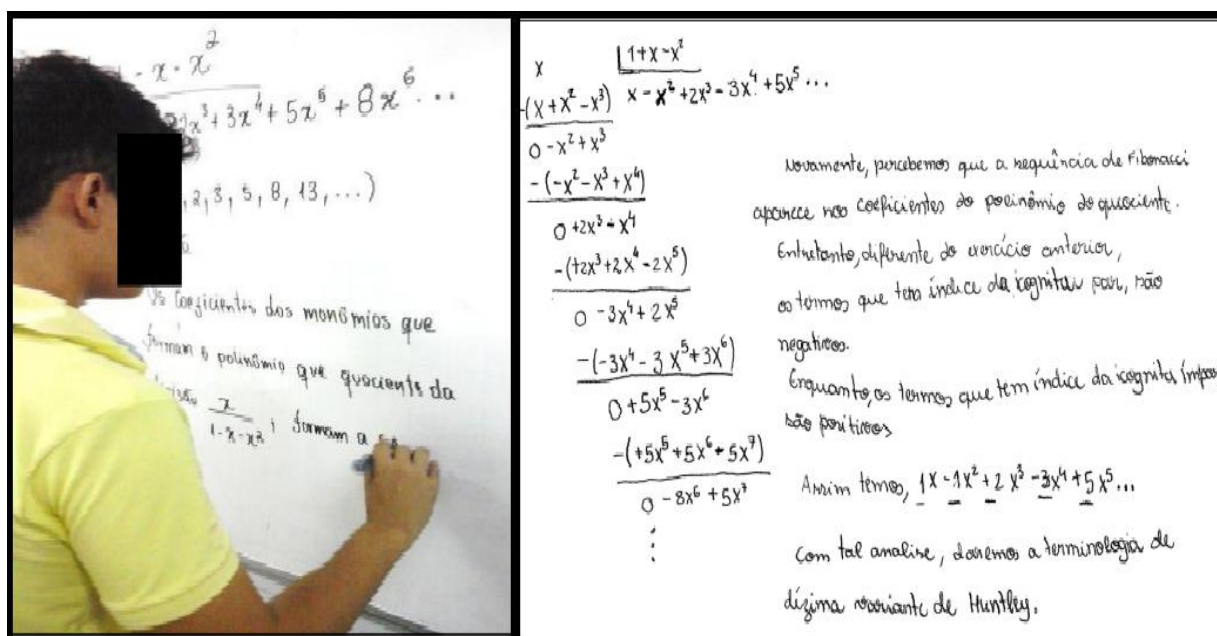 - x - x²
x³ + 3x⁴ + 5x⁵ + 8x⁶ ...
, 2, 3, 5, 8, 13, ...)
Os coeficientes dos monômios que
formam o polinômio que quociente da
x
1-x-x² , formam a
x |1+x-x²
-(x+x²-x³) x - x² + 2x³ - 3x⁴ + 5x⁵ ...
0 - x² + x³
-(-x² - x³ + x⁴)
0 + 2x³ - x⁴
-(+2x³ + 2x⁴ - 2x⁵)
0 - 3x⁴ + 2x⁵
-(-3x⁴ - 3x⁵ + 3x⁶)
0 + 5x⁵ - 3x⁶
-(+5x⁵ + 5x⁶ - 5x⁷)
0 - 8x⁶ + 5x⁷
⋮
Novamente, percebemos que a sequência de Fibonacci
aparece nos coeficientes do polinômio do quociente.
Entretanto, diferente do exercício anterior,
os termos que tem índice da icognita par, são
negativos.
Enquanto, os termos que tem índice da icognita ímpar
são positivos
Assim temos, 1x - 1x² + 2x³ - 3x⁴ + 5x⁵ ...
com tal analise, daremos a terminologia de
dízima variante de Huntley.